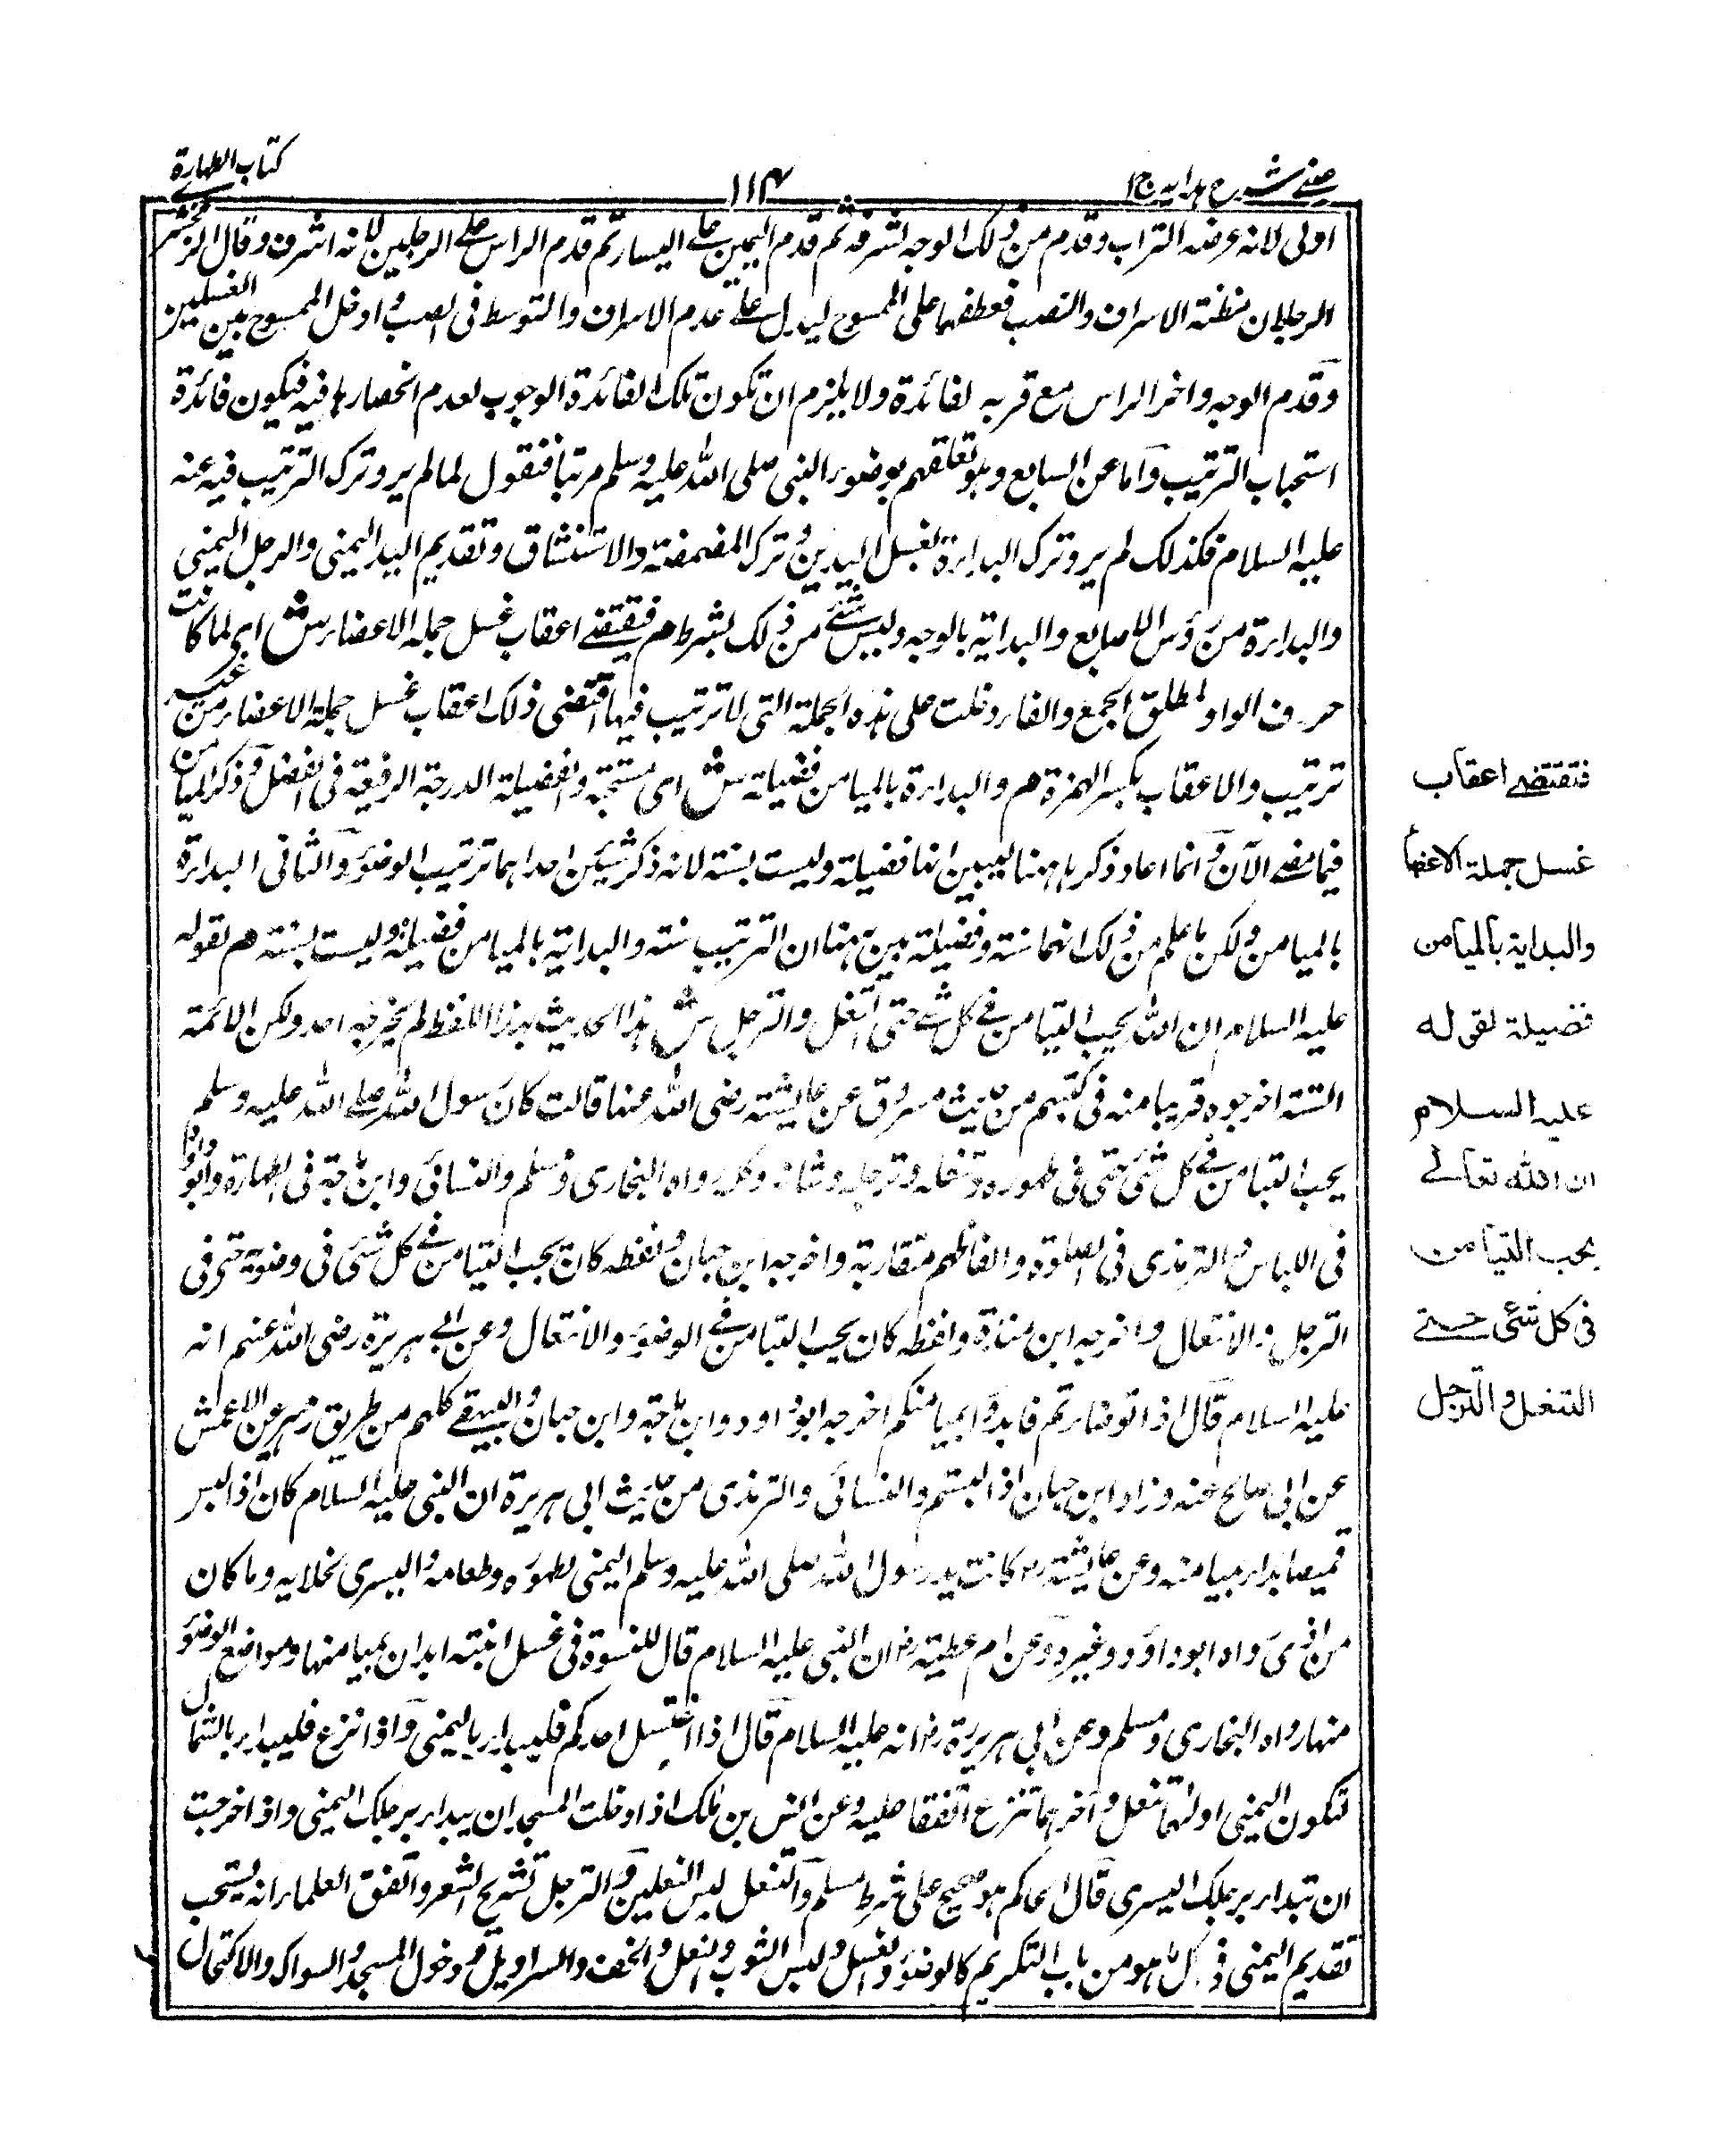 عينى شرح هدايه ج ١
١١٤
كتاب الطهارة
اولى لانه عرضه التراب وقدم من ذلك الوجه لشرفه ثم قدم اليمين على اليسار ثم قدم الراس على الرجلين لانه اشرف وقال الزمخشرى
الرجلان مظنة الاسراف والصب فعطفها على الممسوح ليدل على عدم الاسراف والتوسط فى الصب وادخل الممسوح بين الغسلين
وقدم الوجه واخر الراس مع قربه لفائدة ولا يلزم ان تكون تلك الفائدة الوجوب لعدم انحصارها فيه فيكون فائدة
استحباب الترتيب واما عن السابع وهو تعلقهم بوضوء النبى صلى الله عليه وسلم مرتبا فنقول لما لم يرو ترك الترتيب فيه عنه
عليه السلام فكذلك لم يرو ترك البداءة بغسل اليدين وترك المضمضة والاستنشاق وتقديم اليد اليمنى والرجل اليمنى
والبداءة من رؤس الاصابع والبداية بالوجه وليس شئ من ذلك بشرط م فيقتضى اعقاب غسل جملة الاعضاء ش اى لما كانت
حرف الواو لمطلق الجمع والفاء دخلت على هذه الجملة التى لا ترتيب فيها اقتضى ذلك اعقاب غسل جملة الاعضاء من غير
ترتيب والاعقاب بكسر الهمزة م والبداءة بالميامن فضيلة ش اى مستحبة والفضيلة الدرجة الرفيعة فى الفضل وذكر الميامن
فيما مضى الآن وانما اعاد ذكرها ههنا ليبين انها فضيلة وليست بسنة لانه ذكر شيئين احداهما ترتيب الوضوء والثانى البداءة
بالميامن ولكن ما علم من ذلك انهما سنة وفضيلة بين ههنا ان الترتيب سنة والبداية بالميامن فضيلة وليست بسنة م لقوله
عليه السلام ان الله يحب التيامن فى كل شئ حتى التنعل والترجل ش هذا الحديث بهذا اللفظ لم يخرجه احد ولكن الائمة
الستة اخرجوه قريبا منه فى كتبهم من حديث مسروق عن عايشة رضى الله عنها قالت كان رسول الله صلى الله عليه وسلم
يحب التيامن فى كل شئ حتى فى طهوره وتنعله وترجله وشانه كله رواه البخارى ومسلم والنسائى وابن ماجة فى الطهارة وابو داؤد
فى اللباس والترمذى فى الصلوة والفاظهم متقاربة واخرجه ابن حبان ولفظه كان يحب التيامن فى كل شئ فى وضوئه حتى فى
الترجل والانتعال واخرجه ابن مندة ولفظه كان يحب التيامن فى الوضوء والانتعال وعن ابى هريرة رضى الله عنهم انه
عليه السلام قال اذا توضأتم فابدؤا بميامنكم اخرجه ابو داود وابن ماجة وابن حبان والبيهقى كلهم من طريق زهير عن الاعمش
عن ابى صالح عنه وزاد ابن حبان اذا لبستم والنسائى والترمذى من حديث ابى هريرة ان النبى عليه السلام كان اذا لبس
قميصا بدأ بميامنه وعن عايشة رض كانت يد رسول الله صلى الله عليه وسلم اليمنى لطهوره وطعامه واليسرى لخلايه وما كان
من اذى رواه ابو داود وغيره وعن ام عطية رض ان النبى عليه السلام قال للنسوة فى غسل ابنته ابدأن بميامنها ومواضع الوضوء
منها رواه البخارى ومسلم وعن ابى هريرة رض انه عليه السلام قال اذا انتعل احدكم فليبدأ باليمنى واذا نزع فليبدأ بالشمال
لتكون اليمنى اولهما تنعل وآخرهما تنزع اتفقا عليه وعن انس بن مالك اذا دخلت المسجد ان يبدأ برجلك اليمنى واذا خرجت
ان تبدأ برجلك اليسرى قال الحاكم هو صحيح على شرط مسلم والتنعل لبس النعلين والترجل تشريح الشعر واتفق العلماء انه يستحب
تقديم اليمنى فى كل ما هو من باب التكريم كالوضوء والغسل ولبس الثوب والنعل والخف والسراويل ودخول المسجد والسواك والاكتحال
فتقتضى اعقاب
غسل جملة الاعضاء
والبداية بالميامن
فضيلة لقوله
عليه السلام
ان الله تعالى
يحب التيامن
فى كل شئ حتى
التنعل والترجل